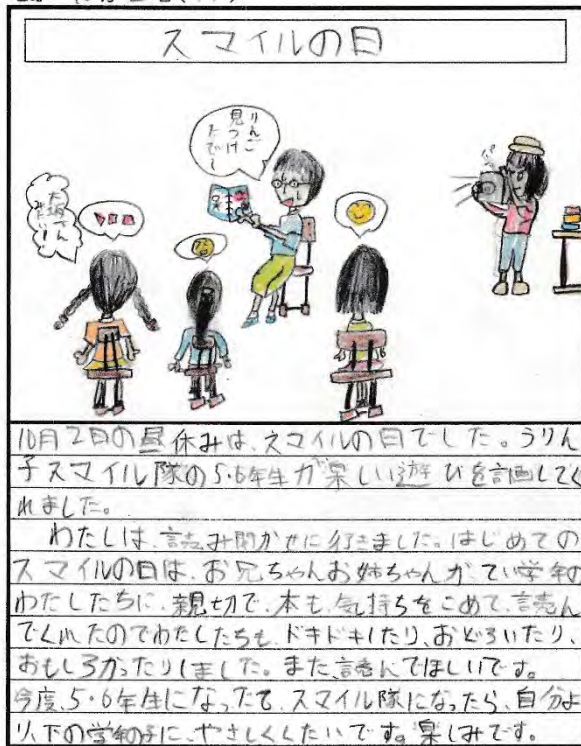 スマイルの日
りんご
見つけ
たでしー
10月2日の昼休みは、スマイルの日でした。うりん
子スマイル隊の5・6年生が楽しい遊びを計画してく
れました。
わたしは、読み聞かせに行きました。はじめての
スマイルの日は、お兄ちゃんお姉ちゃんが、てい学年の
わたしたちに、親切で、本も、気持ちをこめて、読ん
でくれたのでわたしたちも、ドキドキしたり、おどろいたり、
おもしろかったりしました。また、読んでほしいです。
今度、5・6年生になったて、スマイル隊になったら、自分よ
り、下の学年の子に、やさしくしたいです。楽しみです。